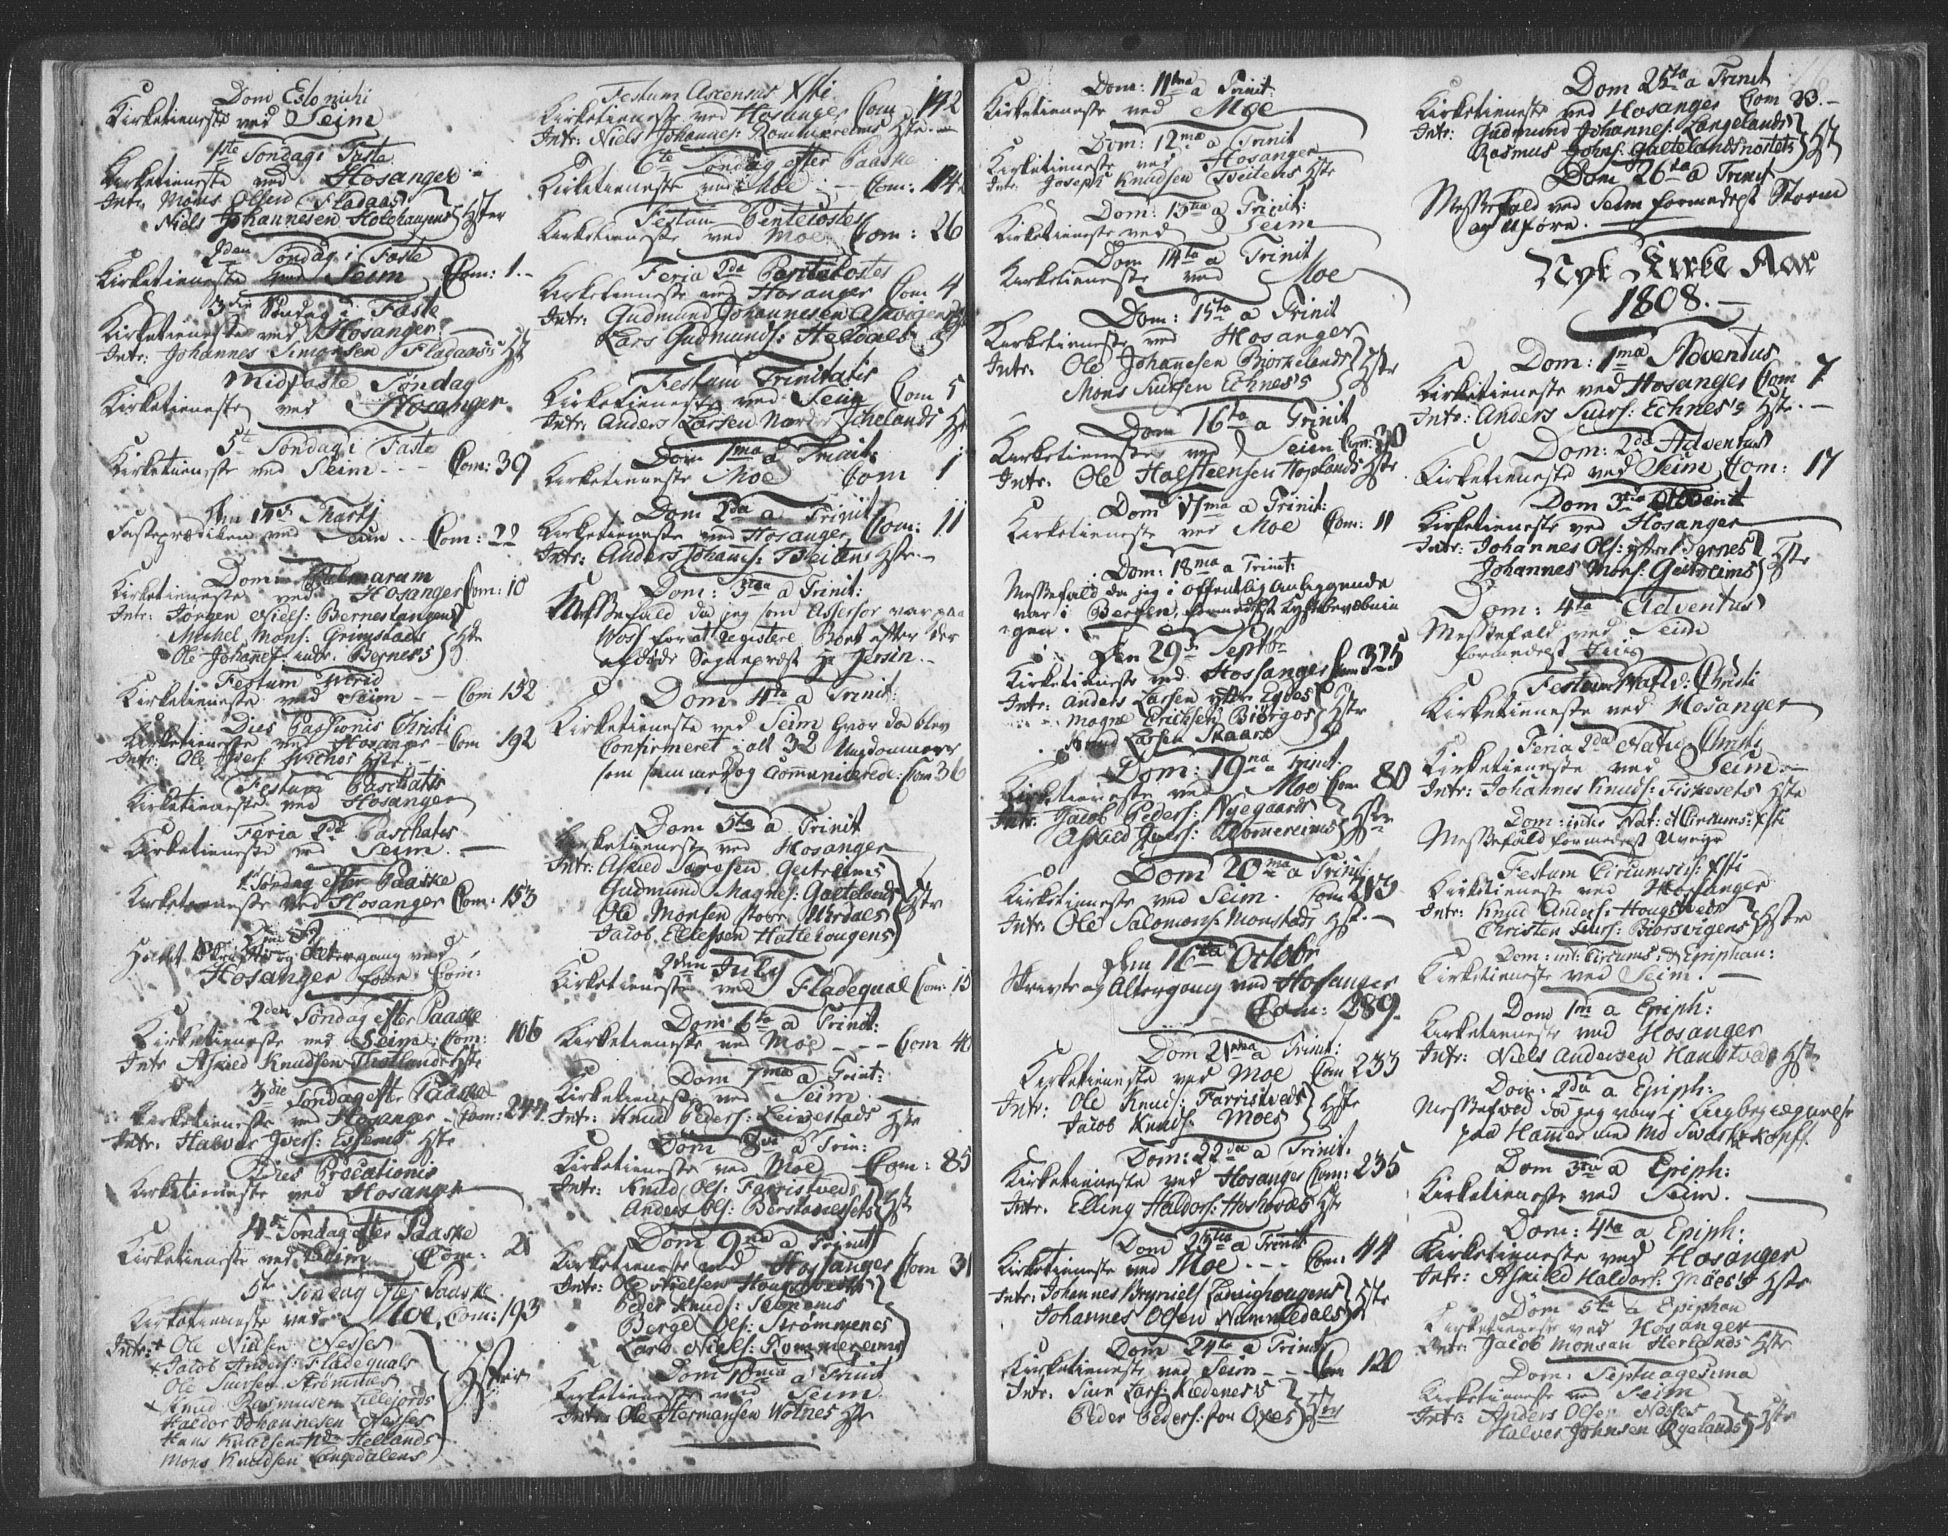 Dom Estomihi
Kirketieneste ved Seim
1ste Søndag i Faste
Kirketieneste ved Hosanger
Intr: Mons Olsen Fladaas
Niels Johannesen Hster
2den Søndag i Faste
Kirketieneste ved Seim Com: 1.
3die Søndag i Faste
Kirketieneste ved Hosanger.
Intr: Johannes Simonsen Fladaas's Hst
Midfaste Søndag
Kirketieneste ved Hosanger.
5te Søndag i Faste
Kirketieneste ved Seim - - - Com: 39
Den 17de Martj
Fasteprædiken ved Seim - - Com: 22
Dom: Palmarum
Kirketieneste ved Hosanger Com: 10
Intr: Jørgen Niels: Bernestangens
Michel Mons: Grimstads
Ole Johannes: indre Bernes's Hste
Festum Virid
Kirketieneste ved Seim - - Com 152
Dies Passionis Christi
Kirketieneste ved Hosanger - Com 192
Intr: Ole Ivers: Hste
Festum Paschatis
Kirketieneste ved Hosanger
Feria 2da Paschates
Kirketieneste ved Seim.
1ste Søndag efter Paaske
Kirketieneste ved Hosanger Com: 153
Holt Skrifte og Altergang ved
Hosanger for Com:
2den Søndag efter Paaske
Kirketieneste ved Seim: Com: 106
Intr Askild Knudsen Hste
3die Søndag efter Paaske
Kirketieneste ved Hosanger Com: 244.
Intr: Halvor Ivers: Hste
Dies Precationis
Kirketieneste ved Hosanger
4de Søndag efter Paaske
Kirketieneste ved Seim Com: 28
5te Søndag efter Paaske
Kirketieneste ved Moe, Com: 193
Intr: Ole Nielsen Nesses
Jacob Anders: Fladequals
Ole Siursen Strømmes
Knud Rasmusen Lillefjords
Haldor Johannesen Nesses
Hans Knudsen Hellands
Mons Knudsen Langedalens Hster
Festum Ascensus Xsti
Kirketieneste ved Hosanger Com 142
Intr: Niels Johannes: Rommereims Hste. -
6te Søndag efter Paaske
Kirketieneste ved Moe - - Com: 114
Festum Pentecostes
Kirketieneste ved Moe Com: 26
Feria 2da Pentecostes
Kirketieneste ved Hosanger Com 4
Intr: Gudmund Johannesen
Lars Gudmunds: Helvals
Festum Trinitatis
Kirketieneste ved Seim Com 5
Intr: Anders Larsen Nordr Ichelands Hst
Dom 1ma a Trinit:
Kirketieneste Moe Com 1
Dom 2da a Trinit:
Kirketieneste ved Hosanger Com: 11
Intr: Anders Johans: Hste. -
Dom: 3tia a Trinit:
Messefald da jeg som Assessor var paa
Voss for at registere Boet efter der
afdøde Sogneprest Hr Gersin. -
Dom 4ta a Trinit:
Kirketieneste ved Seim hvor da blev
Confirmeret i alt 32 Ungdommer
som sammedag Communicerede: Com 36
Dom 5ta a Trinit
Kirketieneste ved Hosanger
Intr: Askild Geitreims
Gudmund Magnes: Gaatelands
Ole Monsen store Urdals
Jacob Ellefsen Hattehougens Hste
2den July
Kirketieneste ved Fladequal Com: 15
Dom: 6ta a Trinit:
Kirketieneste ved Moe - - - Com 40
Dom 7ma a Trinit:
Kirketieneste ved Seim
Intr: Knud Peders: Leivestads Hste
Dom 8va a Trin:
Kirketieneste ved Moe - Com: 85
Intr: Knud Ols: Farristveds
Anders Ols: Hst
Dom 9na a Trinit
Kirketieneste ved Hossanger Com 31
Intr: Ole Nielsen
Peder Knuds:
Børge Ols: Strømmenes
Lars Niels: Rommereims
Dom 10ma a Trinit
Kirketieneste ved Seim.
Intr: Ole Hermansen Votnes Hste
Dom: 11ma a Trinit:
Kirketieneste ved Moe
Dom: 12ma a Trinit
Kirketieneste ved Hosanger
Intr: Joseph Knudsen Tveitens Hste
Dom: 13tia a Trinit:
Kirketieneste ved Seim
Dom 14ta a Trinit
Kirketieneste ved Moe
Dom: 15ta a Trinit
Kirketieneste ved Hosanger
Intr. Ole Johannesen Biørkelands
Mons Siursen Echnes's Hste
Dom 16ta a Trinit
Kirketieneste ved Seim Com: 30
Intr. Ole Halsteensen Hoplands Hste
Dom 17ma a Trinit:
Kirketieneste ved Moe Com: 11
Dom: 18ma a Trinit:
Messefald da jeg i offentlig Anliggende
var i Bergen, formedelst Kystbevæbnin
gen.
Den 29de Septbr
Kirketieneste ved Hossanger Com 375
Intr: Anders Larsen yttre
Magne Erichsen Biørgos
Larsen Skaars Hste
Dom: 19na a Trinit.
Kirketieneste ved Moe Com 80
Intr: Jacob Peders: Nyegaards
Askild Rommereims Hste
Dom 20ma a Trinit
Kirketieneste ved Seim. Com 213
Intr: Ole Salomons: Monstads Hst. -
Den 16ta Octobr
Skrivte og Altergang ved Hosanger
Com: 289.
Dom 21ma a Trinit:
Kirketieneste ved Moe Com 233
Intr: Ole Knuds: Farristveds
Jacob Knuds: Moes Hste
Dom: 22da a Trinit.
Kirketieneste ved Hosanger Com: 235
Intr. Elling Haldors: Hste
Dom 23tia a Trinit
Kirketieneste ved Moe - - - Com: 44
Intr: Johannes Bryniels: Ladvighougens
Johannes Olsen Nammedals Hste
Dom 24ta a Trinit
Kirketieneste ved Seim - - Com 120
Intr. Siur Lars:
Peder Peders: for Oxes Hster
Dom 25ta a Trinit
Kirketieneste ved Hosanger Com 23. -
Intr: Gudmund Johannes: Langelands
Rasmus Johns: Hst
Dom 26ta a Trinit
Messefald ved Seim formedelst Storm
og Uføre.
Nyt Kirke Aar
1808. -
Dom: 1ma Adventus
Kirketieneste ved Hosanger Com 7
Intr: Anders Siurs: Echnes's Hste. -
Dom: 2da Adventus
Kirketieneste ved Seim Com: 17
Dom 3tia Advent
Kirketieneste ved Hosanger
Intr: Johannes Ols: yttre Bernes
Johannes Mons: Geitreims Hste
Dom: 4ta Adventus
Messefald ved Seim
formedelst
Festum Nativ: Christi
Kirketieneste ved Hosanger
Feria 2da Nativ Christi
Kirketieneste ved Seim. -
Intr: Johannes Knuds: Fiskesets Hste
Dom: inter Nat: et Circums: Xsti
Messefald formedelst Uveyr
Festum Circumscis: Xsti
Kirketieneste ved Hosanger
Intr: Knud Anders: Hougstveds
Christen Siurs: Biørsvigens Hste
Dom: int: Circums: et Epiphan:
Kirketieneste ved Seim. -
Dom 1ma a Epiph:
Kirketieneste ved Hosanger
Intr: Niels Andersen Haugstveds Hste
Dom: 2da a Epiph:
Messefald da jeg var i Liigbegiegnelse
paa Hammer ved Md Swartskopff
Dom 3tia a Epiph:
Kirketieneste ved Seim.
Dom: 4ta a Epiph:
Kirketieneste ved Hosanger
Intr: Askild Haldors: Moes's Hste
Dom 5ta a Epiphan
Kirketieneste ved Hosanger
Intr: Jacob Monsen Herlands Hste
Dom: Septuagesima
Kirketieneste ved Seim
Intr: Anders Olsen Nesses
Halvor Johnsen Øyelands Hste